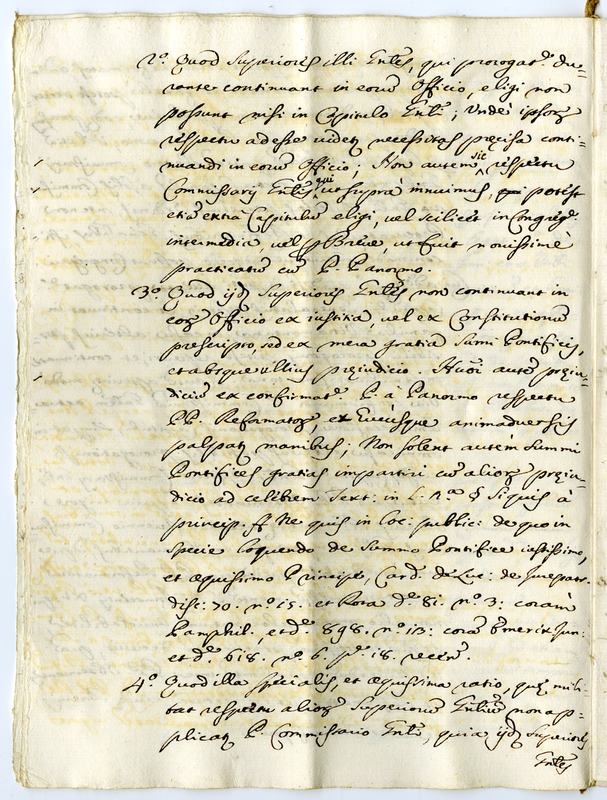 2.º Quod Superiores illi Gnles, qui prorogat.e du=
rante continuant in eorũ Officio, eligi non
possunt nisi in Capitulo Gnli; Undè ipsorq
respectu adesse videtq necessitas precisa conti=
nuandi in eorũ Officio; Non autem sic respectu
Commissarij Gnlis, qui ut suprà innuimus, potest
etiã extra Capitulũ eligi, vel scilicet in Congreg.e
intermedia, vel p Breve, ut fuit novissimè
practicatũ cũ P. Panormo.
3.º Quod ijdq Superiores Gnles non continuant in
eorq Officio ex iustitia, vel ex Constitutionũ
prescripto, sed ex mera gratia Sumi Pontificis,
et absque ullius prejudicio. Hũoi autẽ preju=
diciũ ex confirmat.e P. à Panormo respectu
PP. Reformatorq, ex huc usque animadversis
palpatq manibus; Non solent autèm Summi
Pontifices gratias impartiri cũ aliorq preju=
dicio ad celebrem Text: in L. 2.a § Si quis à
princip. ff Ne quis in loc: public: de quo in
specie loquendo de Summo Pontifice iustissimo,
et æquissimo Principe, Card. de Luc: de Jurepatr.
disc: 70. nº 15. et Rota d.e 81. nº 3: coràm
Pamphil., et d.e 898. nº 13: corã Emerix Jun:
et d.e 618. nº 6. p.e 18. recen.
4.º Quod illa specialis, et æquissima ratio, quę mili=
tat respectu aliorq Superiorũ Gnliũ non ap=
plicatq P. Commissario Gnli, quia ijdq Superiores
Gnles